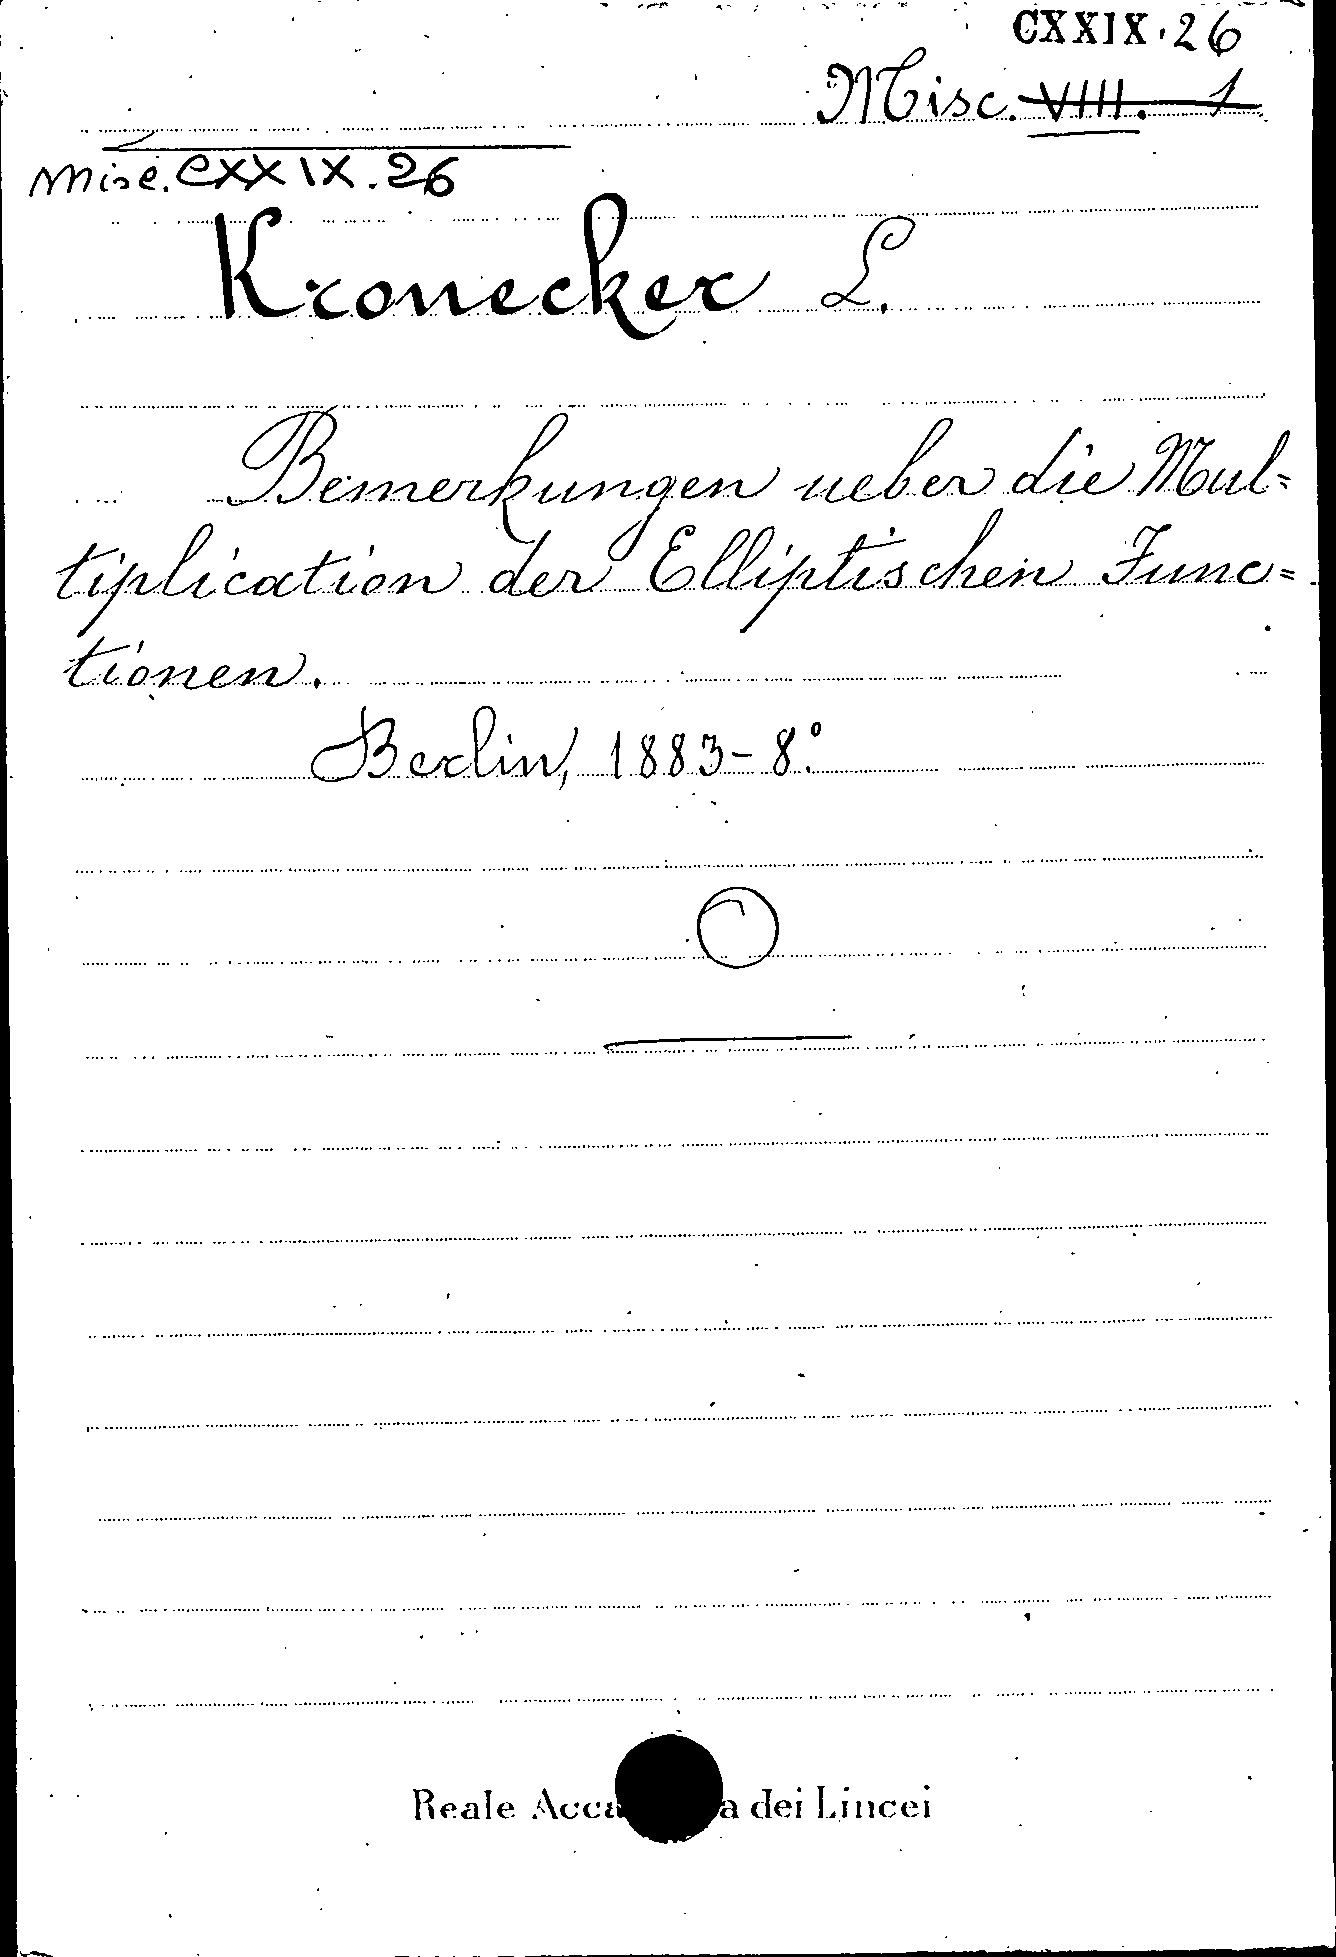 CXXIX.26
Misc. VIII. 1
Misc. CXXIX.26
Kronecker L.
Bemerkungen ueber die Mul=
tiplication der Elliptischen Func=
tionen.
Berlin, 1883-8.°
Reale Acca a dei Lincei